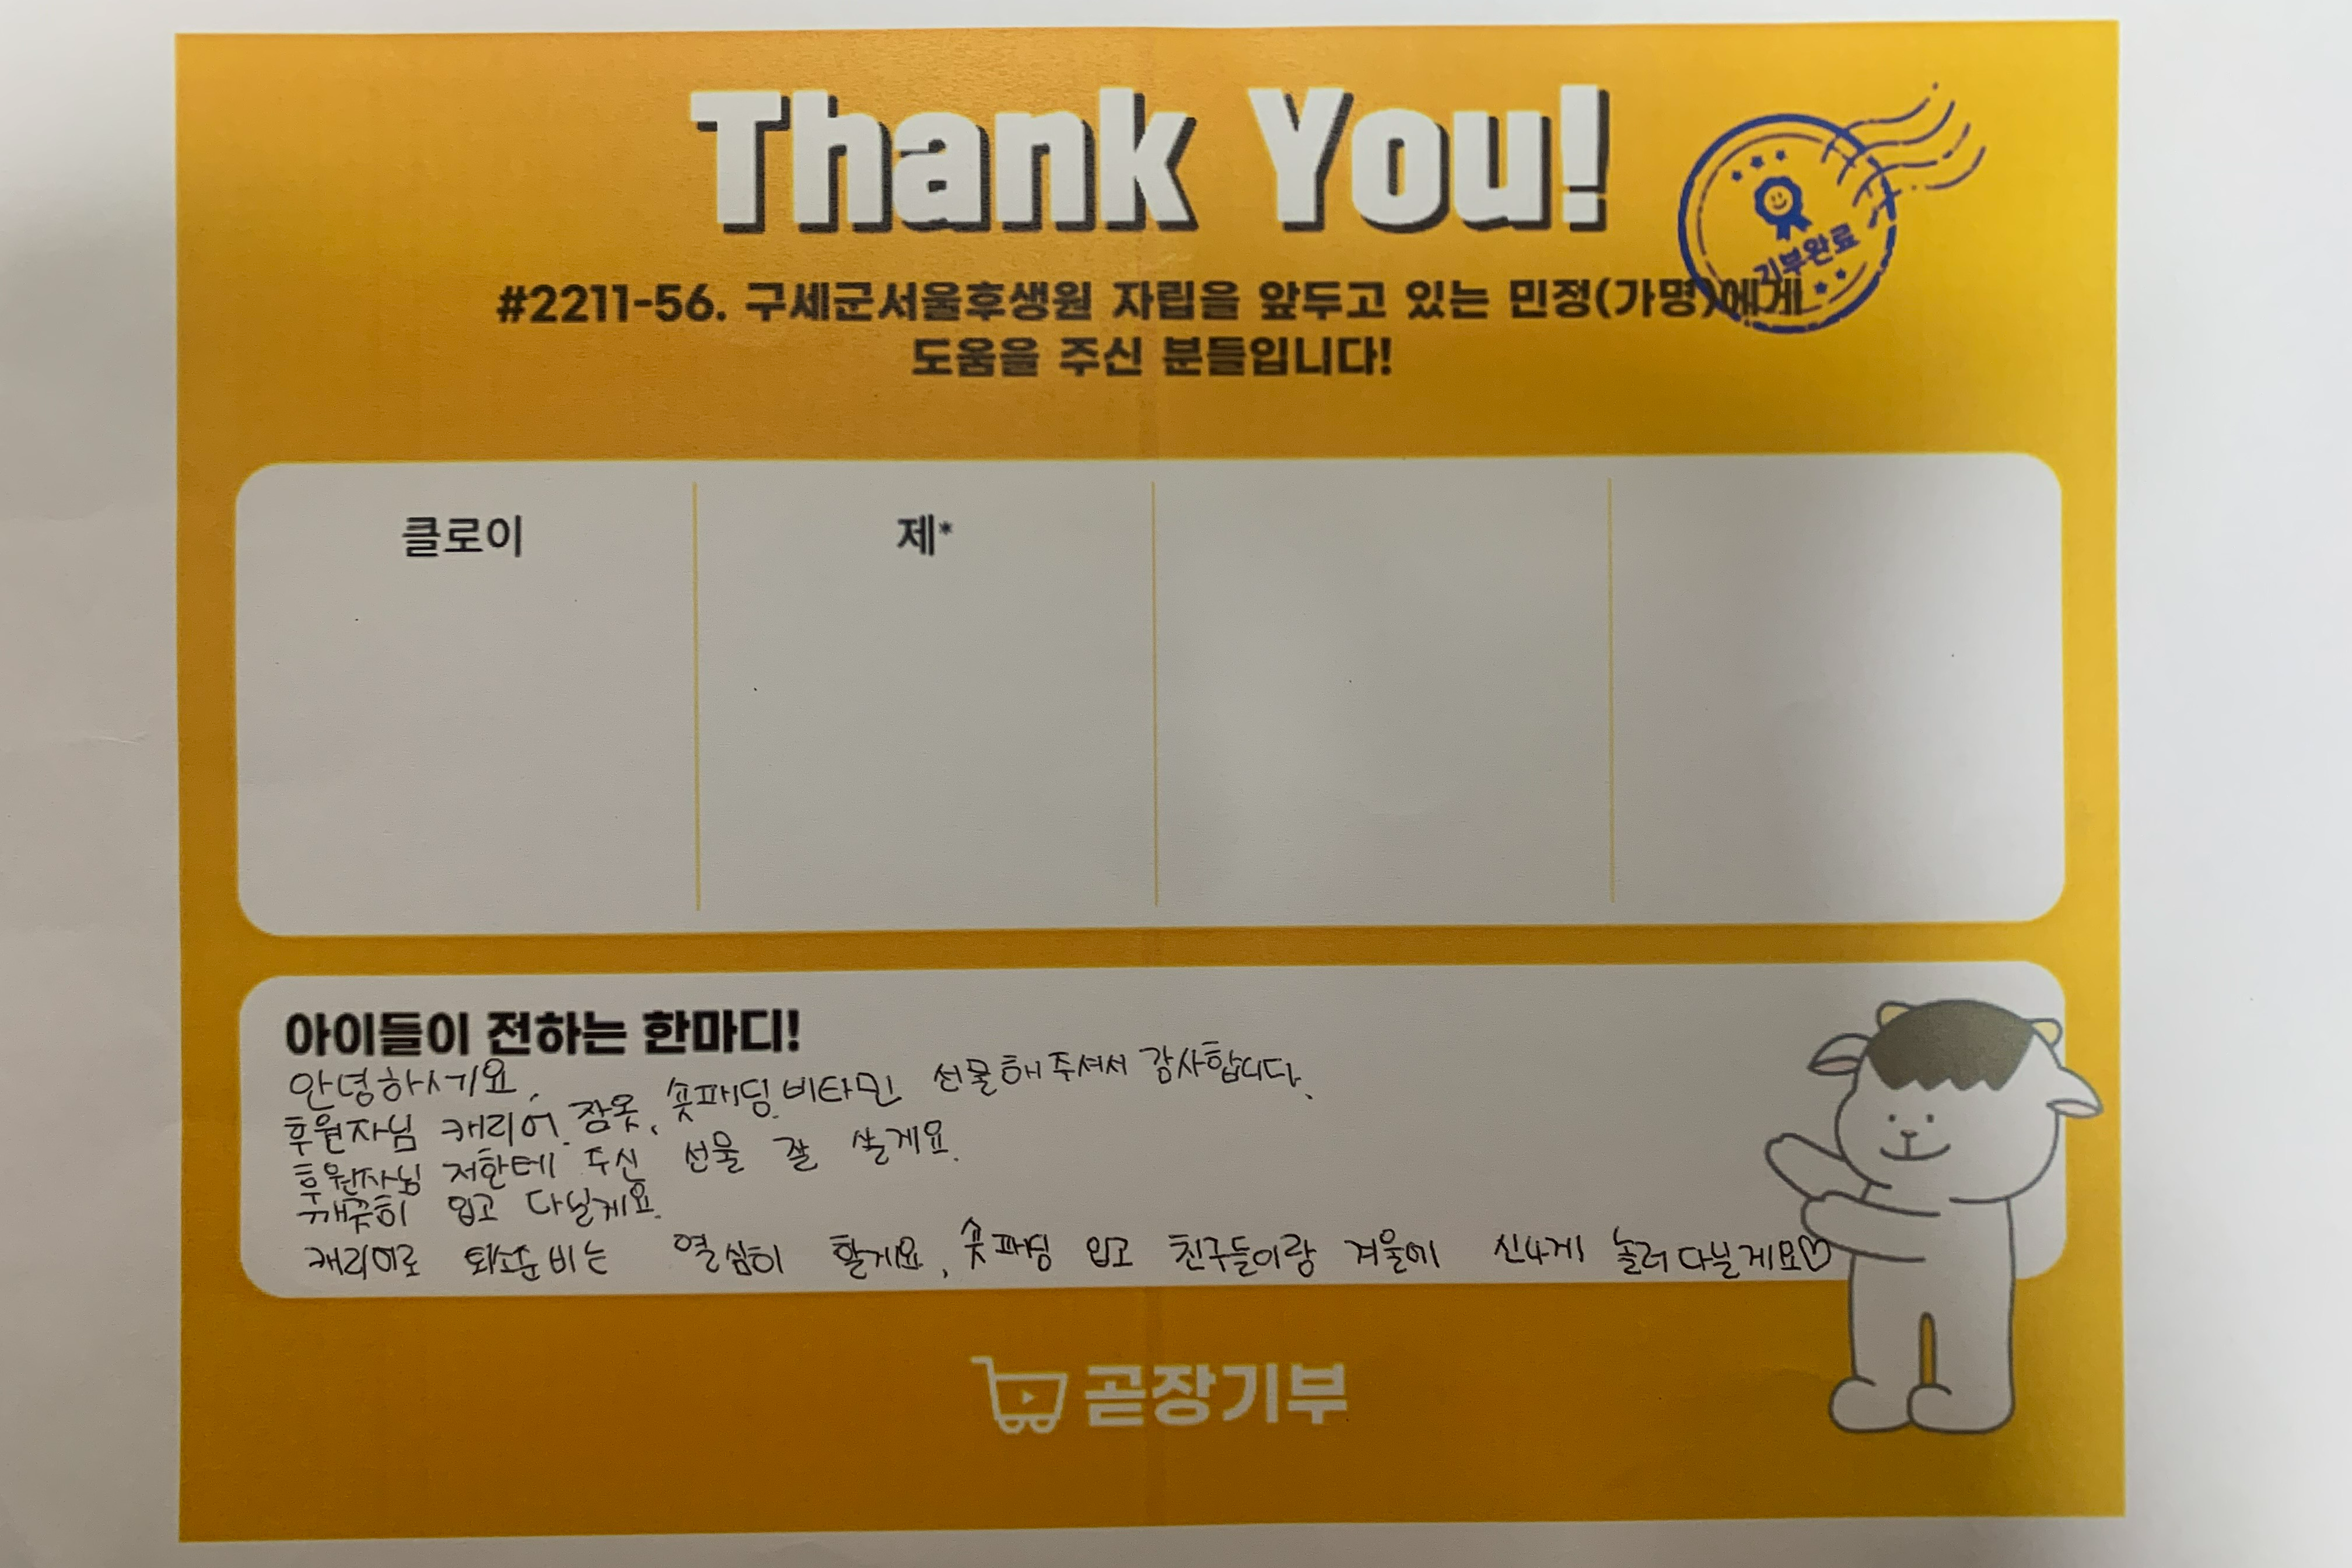 Thank You!
기부완료
#2211-56. 구세군서울후생원 자립을 앞두고 있는 민정(가명)에게
도움을 주신 분들입니다!
클로이
제*
아이들이 전하는 한마디!
안녕하세요.
후원자님 캐리어, 잠옷, 숏패딩, 비타민 선물해주셔서 감사합니다.
후원자님 저한테 주신 선물 잘 쓸게요.
깨끗히 입고 다닐게요.
캐리어로 퇴소준비는 열심히 할게요, 숏패딩 입고 친구들이랑 겨울에 신나게 놀러다닐게요♡
곧장기부